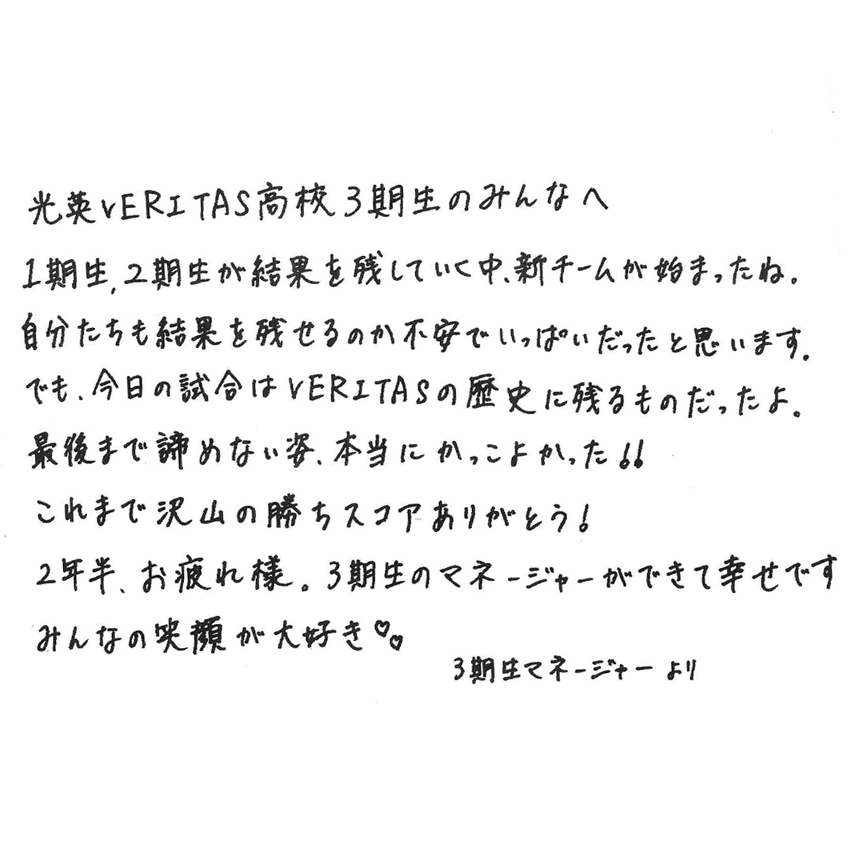 光英VERITAS高校3期生のみんなへ
1期生,2期生が結果を残していく中、新チームが始まったね。
自分たちも結果を残せるのか不安でいっぱいだったと思います。
でも、今日の試合はVERITASの歴史に残るものだったよ。
最後まで諦めない姿、本当にかっこよかった!!
これまで沢山の勝ちスコアありがとう!
2年半、お疲れ様。3期生のマネージャーができて幸せです
みんなの笑顔が大好き♡♡
3期生マネージャーより